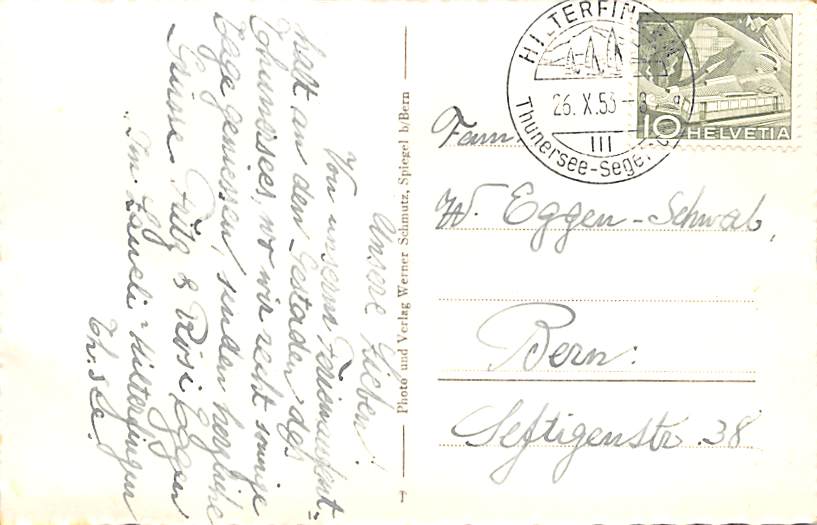 Unsere Lieben!
Von unserm Ferienaufent-
halt an den Gestaden des
Thunersees, wo wir recht sonnige
Tage geniessen, senden herzliche
Grüsse Fritz & Rösi Eggen
"Im Stueli" Hilterfingen
Th. See.
Photo und Verlag Werner Schmutz, Spiegel b/Bern
HILTERFINGEN
26. X. 53 - 8
III
Thunersee-Segel
10 HELVETIA
Fam.
W. Eggen-Schwab,
Bern:
Seftigenstr. 38